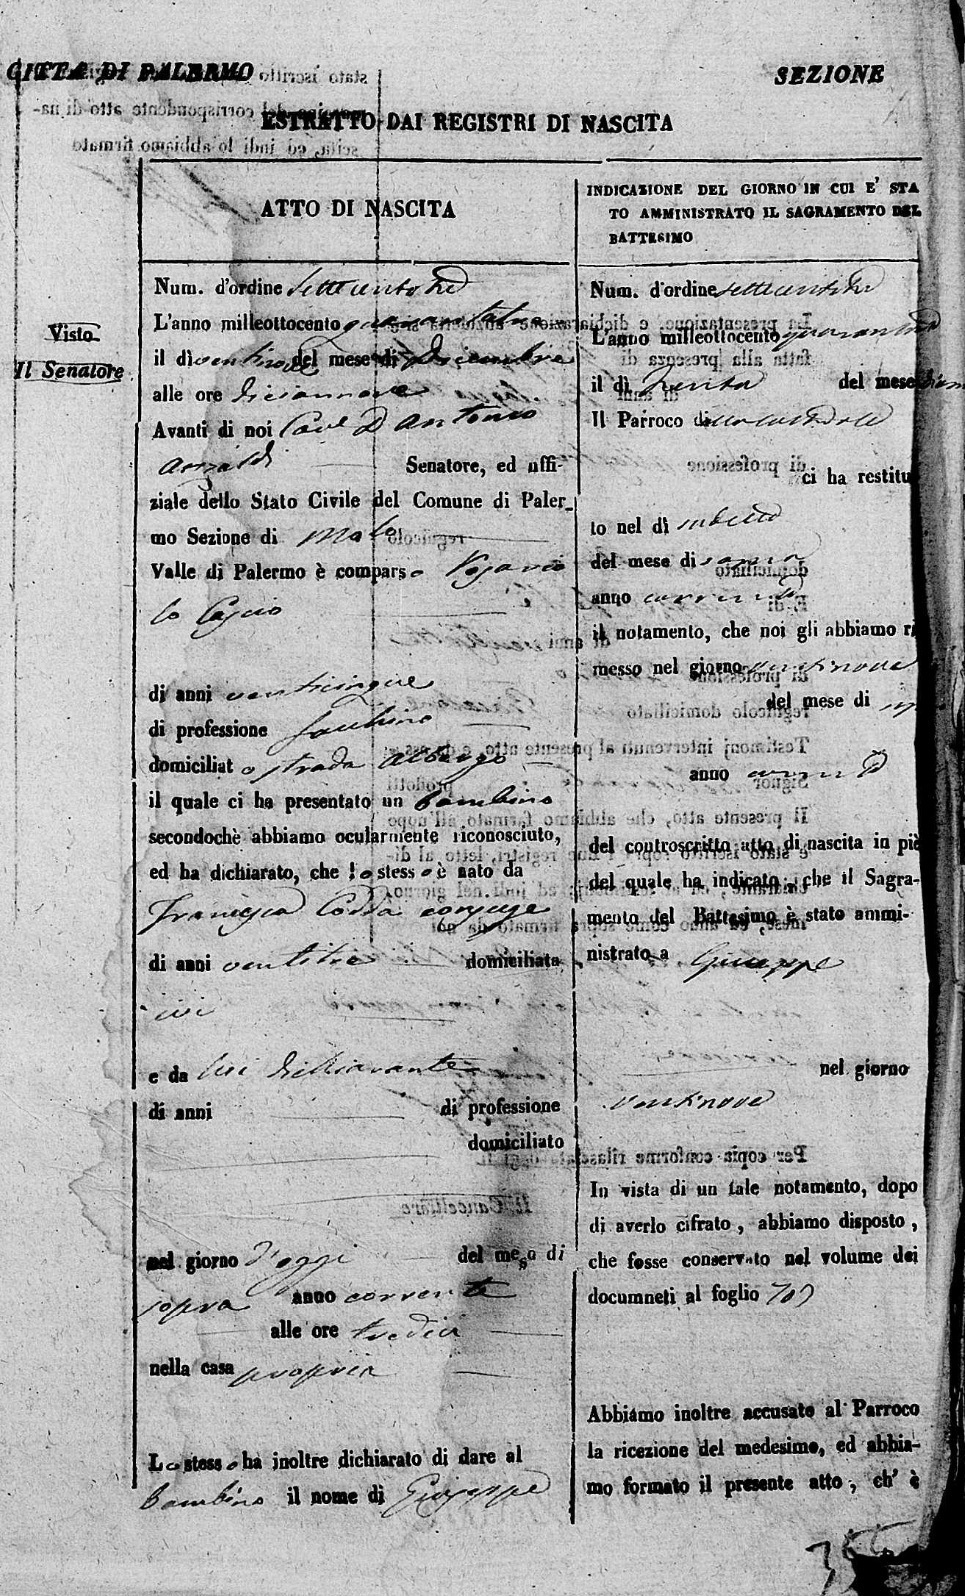 CITTÀ DI PALERMO
SEZIONE
ESTRATTO DAI REGISTRI DI NASCITA
Visto
Il Senatore
ATTO DI NASCITA
Num. d'ordine settecento tre
L'anno milleottocento
il dì ventinove del mese di Dicembre
alle ore diciannove
Avanti di noi Cav.e D Antonio
Senatore, ed uffi-
ziale dello Stato Civile del Comune di Paler_
mo Sezione di Molo
Valle di Palermo è comparso Rosario
lo Cascio
di anni venticinque
di professione facchino
domiciliato strada Albergo
il quale ci ha presentato un bambino
secondochè abbiamo ocularmente riconosciuto,
ed ha dichiarato, che lo stesso è nato da
Francesca Costa conjuge
di anni ventitre domiciliata
ivi
e da lui dichiarante
di anni di professione
domiciliato
nel giorno d'oggi del meso di
sopra anno corrente
alle ore tredici
nella casa propria
Lo stesso ha inoltre dichiarato di dare al
bambino il nome di Giuseppe
INDICAZIONE DEL GIORNO IN CUI E' STA
TO AMMINISTRATO IL SAGRAMENTO DEL
BATTESIMO
Num. d'ordine settecento tre
L'anno milleottocento
il dì trenta del mese
Il Parroco della
ci ha restitu
to nel dì
del mese di
anno corrente
il notamento, che noi gli abbiamo ri
messo nel giorno ventinove
del mese di
anno corrente
del controscritto atto di nascita in piè
del quale ha indicato, che il Sagra-
mento del Battesimo è stato ammi-
nistrato a Giuseppe
nel giorno
ventinove
In vista di un tale notamento, dopo
di averlo cifrato, abbiamo disposto,
che fosse conservato nel volume dei
documneti al foglio 703
Abbiamo inoltre accusato al Parroco
la ricezione del medesimo, ed abbia-
mo formato il presente atto, ch' è